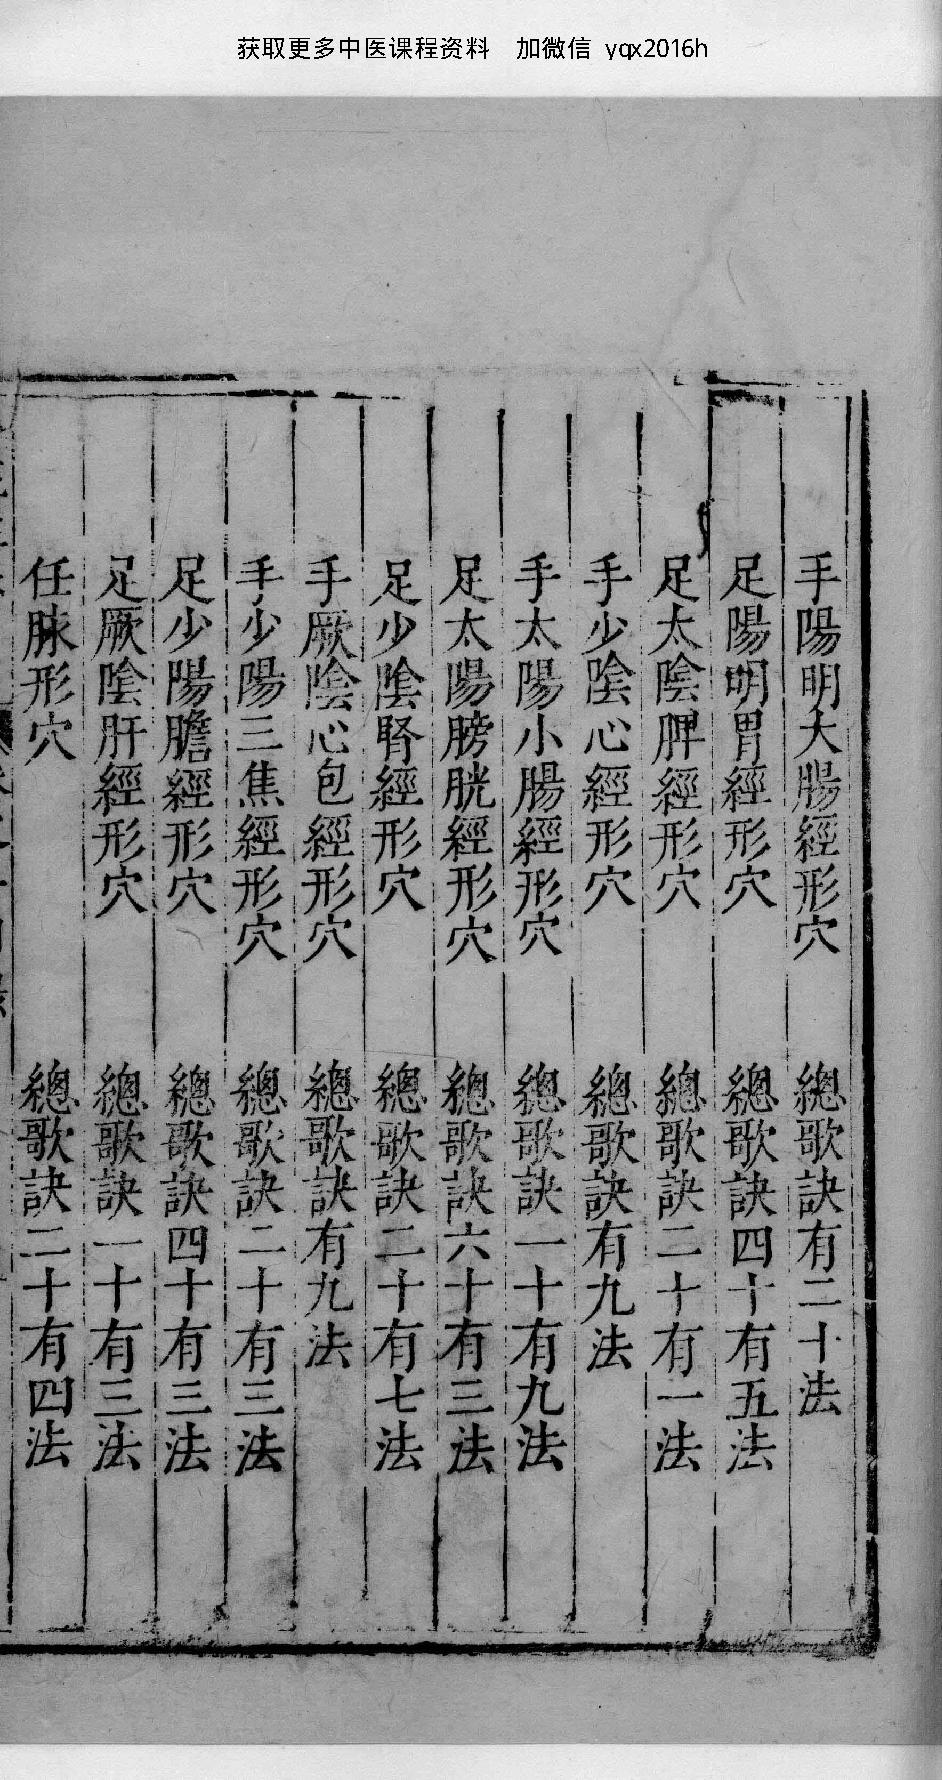 获取更多中医课程资料 加微信 yqx2016h
手陽明大腸經形穴 總歌訣有二十法
足陽明胃經形穴 總歌訣四十有五法
足太陰脾經形穴 總歌訣二十有一法
手少陰心經形穴 總歌訣有九法
手太陽小腸經形穴 總歌訣一十有九法
足太陽膀胱經形穴 總歌訣六十有三法
足少陰腎經形穴 總歌訣二十有七法
手厥陰心包經形穴 總歌訣有九法
手少陽三焦經形穴 總歌訣二十有三法
足少陽膽經形穴 總歌訣四十有三法
足厥陰肝經形穴 總歌訣一十有三法
任脉形穴 總歌訣二十有四法